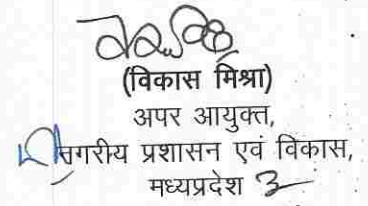 (विकास मिश्रा)
अपर आयुक्त,
नगरीय प्रशासन एवं विकास,
मध्यप्रदेश